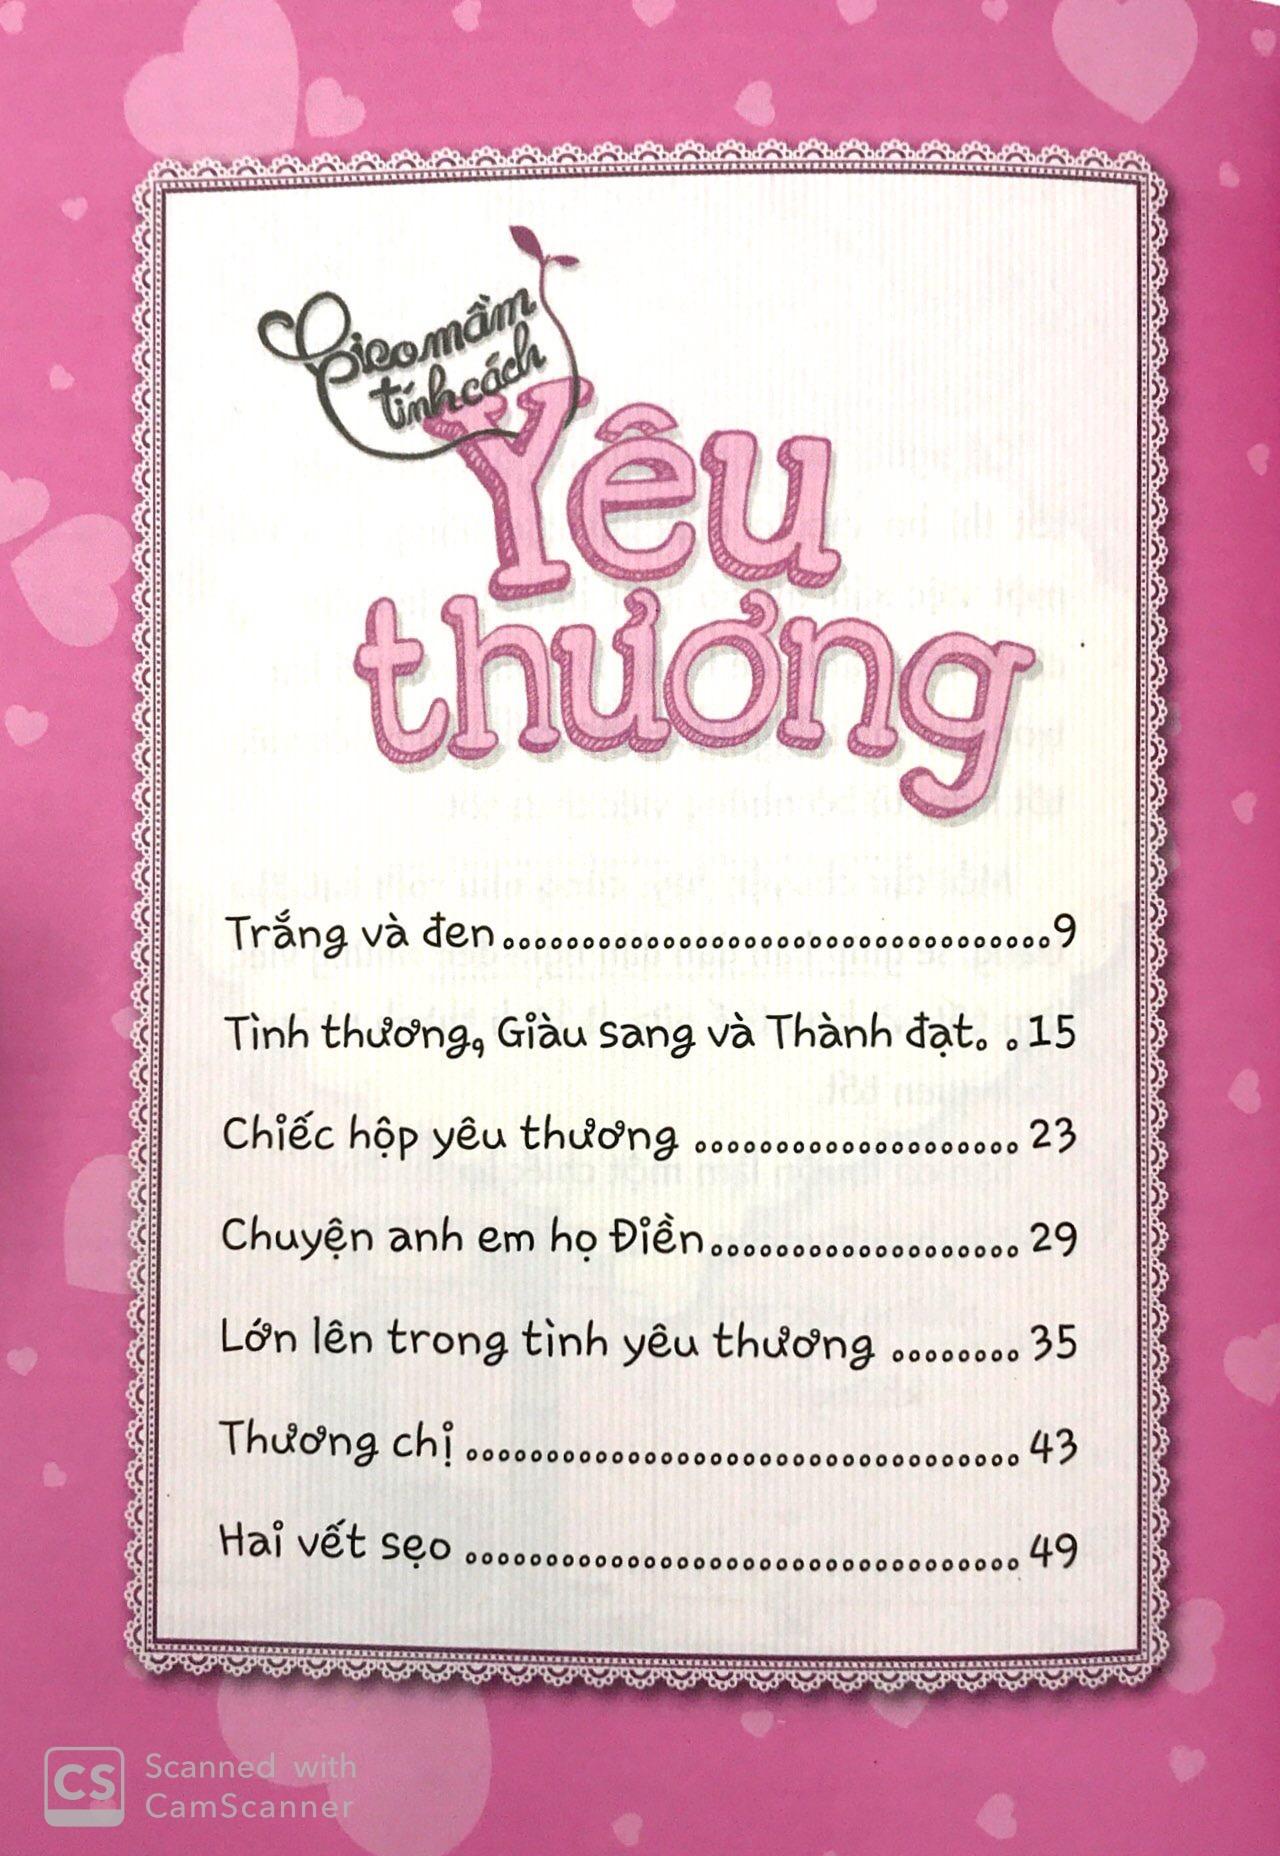 Gieo mầm
tính cách
Yêu
thương
Trắng và đen..................................9
Tình thương, Giàu sang và Thành đạt. .15
Chiếc hộp yêu thương .................... 23
Chuyện anh em họ Điền................... 29
Lớn lên trong tình yêu thương ........ 35
Thương chị .................................. 43
Hai vết sẹo .................................. 49
CS
Scanned with
CamScanner